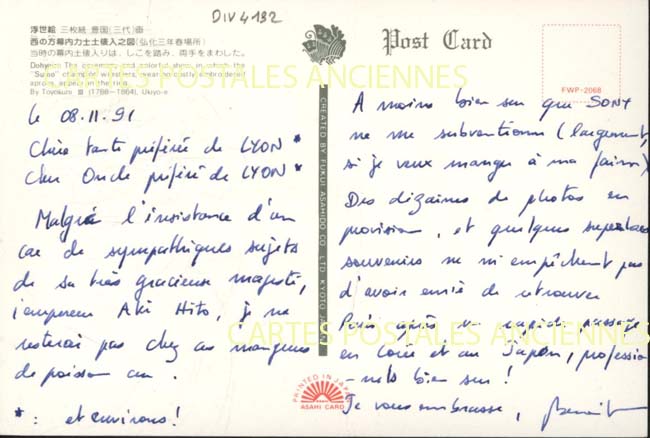 DIV4192
浮世絵 三枚続 豊国(三代)画
西の方幕内力士土俵入之図(弘化三年春場所)
当時の幕内土俵入りは、しこを踏み、両手をまわした。
Dohyo-iri The ceremony and colorful show, in which the
"Sumo" champion wrestlers, wear in costly embroidered
aprons, enter in the ring.
By Toyokuni Ⅲ (1786–1864), Ukiyo-e
le 08.11.91
Chère tante préférée de LYON *
Cher Oncle préféré de LYON *
Malgré l'insistance d'un
car de sympathiques sujets
de sa très gracieuse majesté,
l'empereur Aki Hito, je ne
resterai pas chez ces mangeurs
de poisson cru.
* : et environs !
CREATED BY FUKUI ASAHIDO CO. LTD. KYOTO JAPAN
PRINTED IN JAPAN
ASAHI CARD
Post Card
FWP-2068
A moins bien sur que SONY
ne me subventionne (largement,
si je veux manger à ma faim)
Des dizaines de photos en
provision, et quelques superbes
souvenirs ne m'empêchent pas
d'avoir envie de retrouver
Paris après un rapide passage
en Corée et au Japon, profession
-nels bien sur !
Je vous embrasse, Benoit
CARTES POSTALES ANCIENNES
CARTES POSTALES ANCIENNES